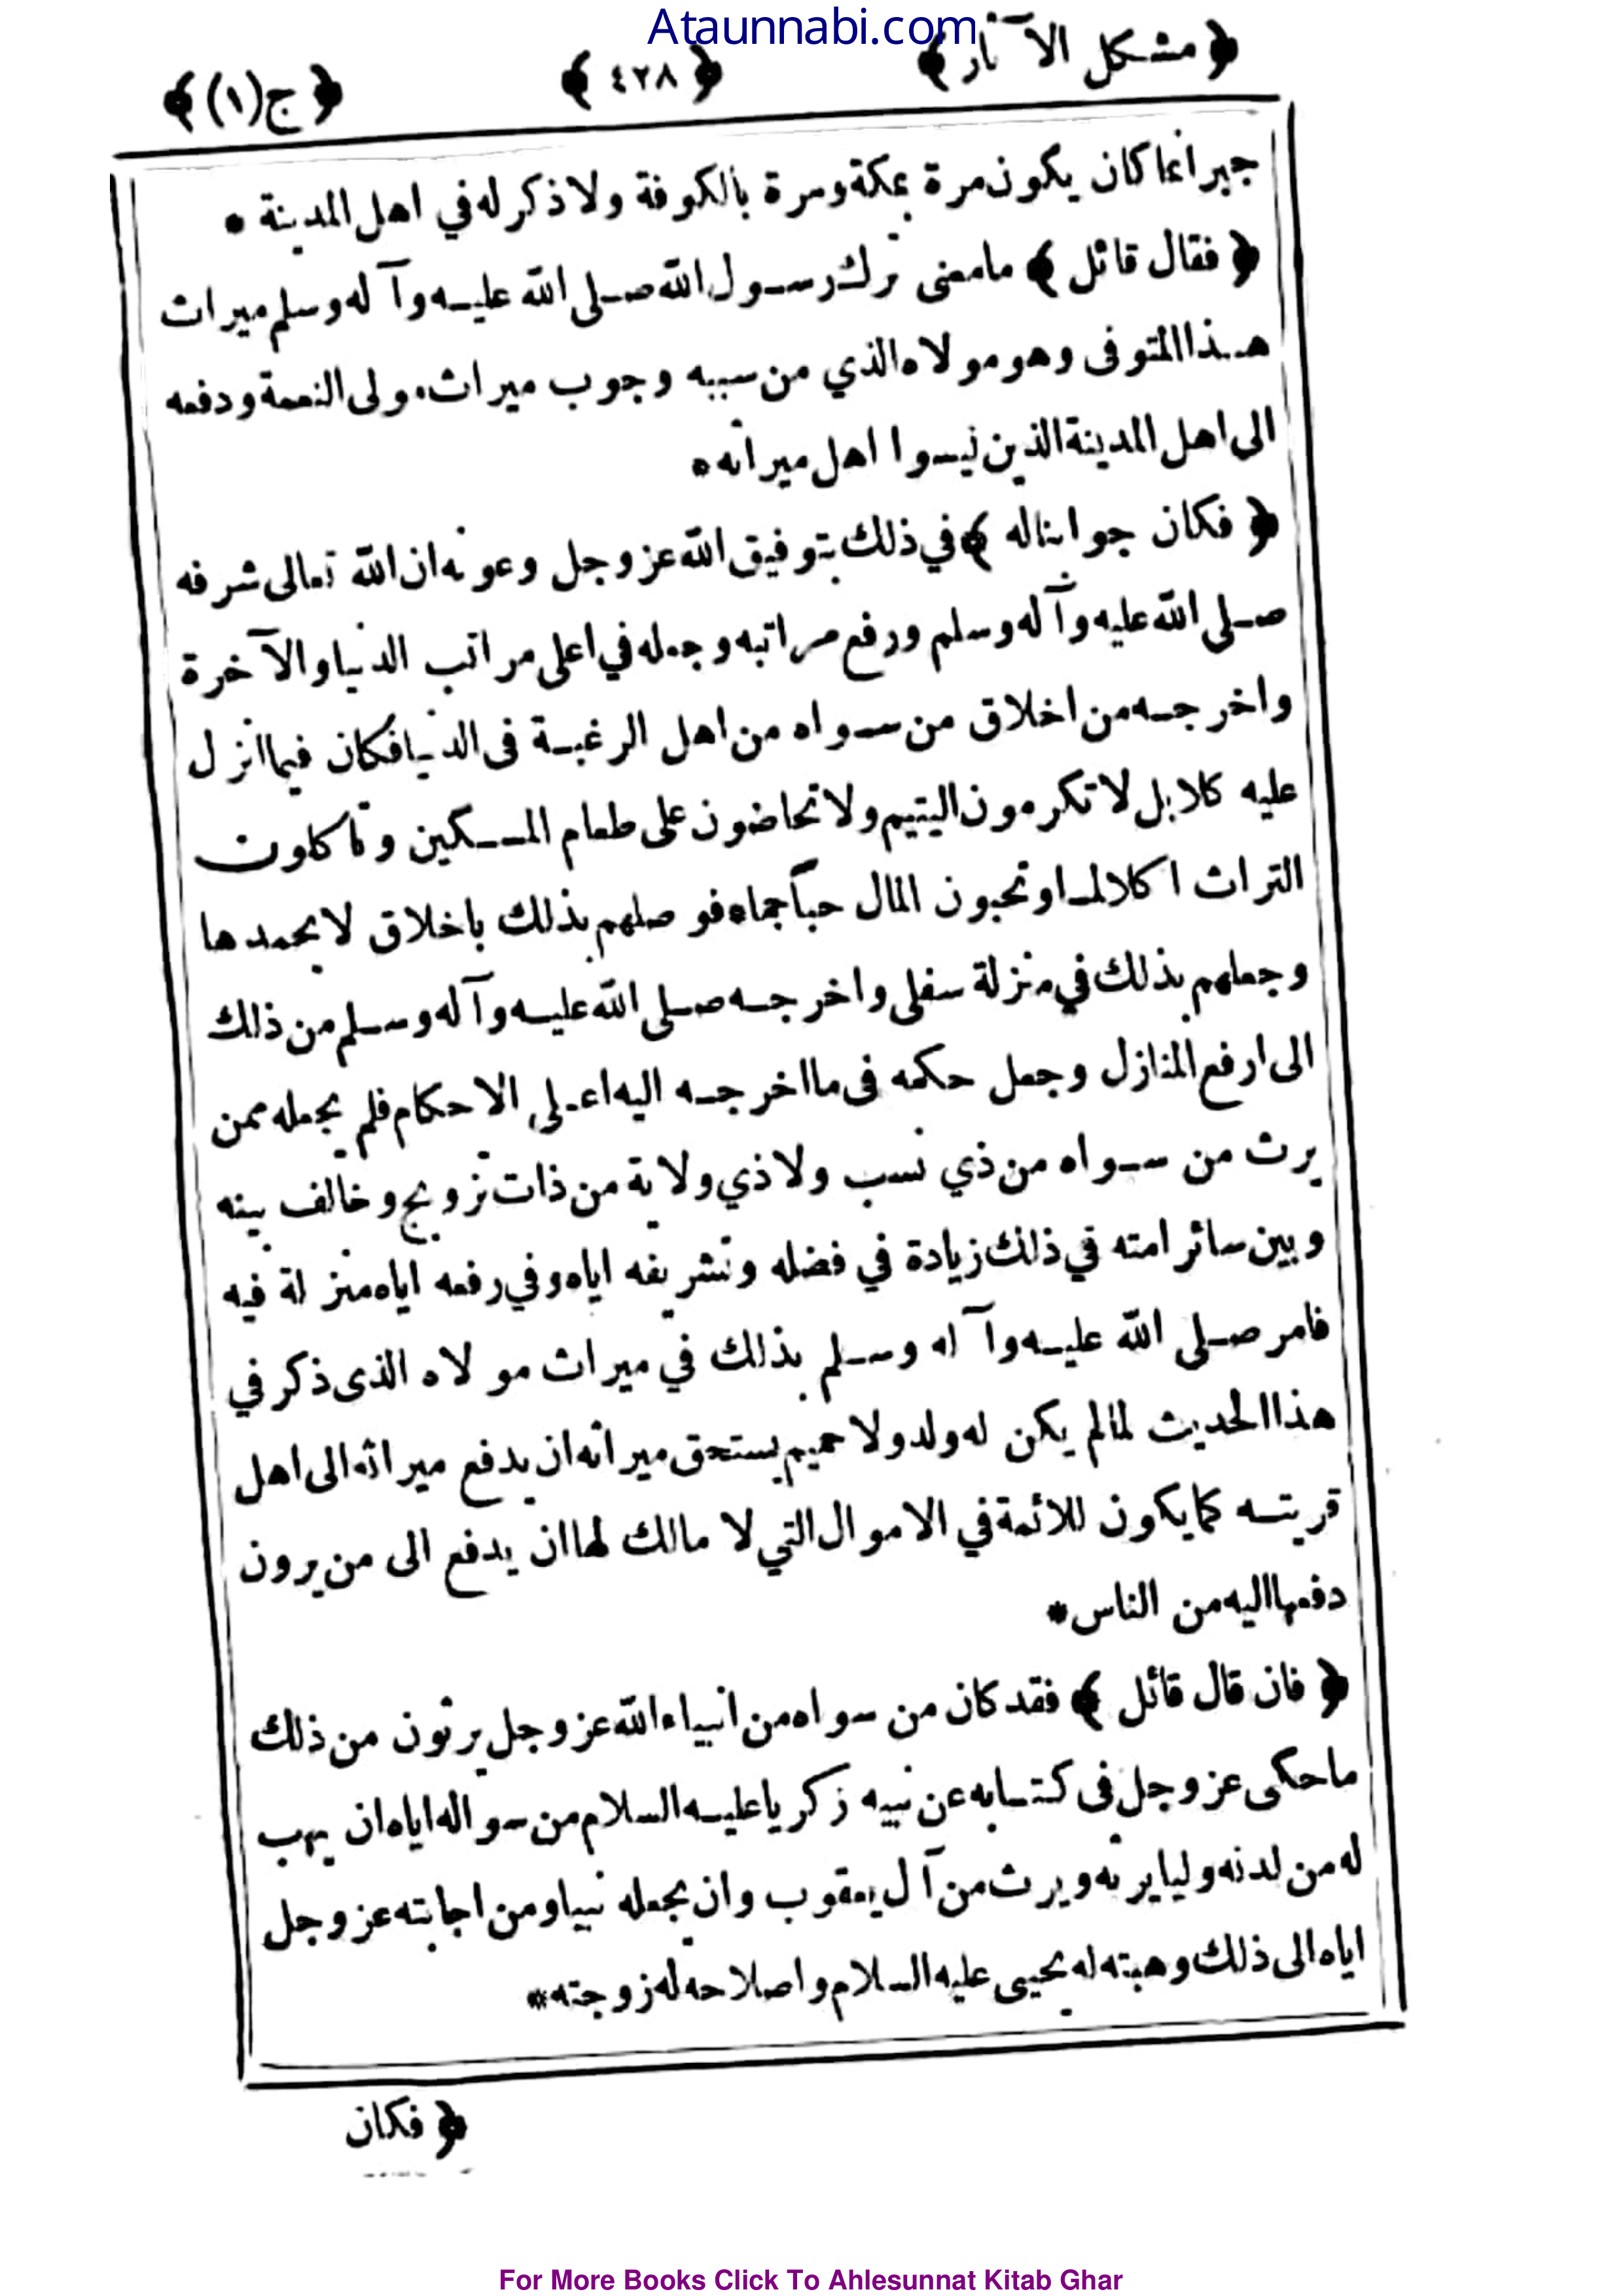 Ataunnabi.com
﴿ مشكل الآثار ﴾ ﴿ ٤٢٨ ﴾ ﴿ ج(١) ﴾
جبر انما كان يكون مرة بمكة ومرة بالكوفة ولا ذكر له في اهل المدينة *
﴿ فقال قائل ﴾ ما معنى ترك رسول الله صلى الله عليه وآله وسلم ميراث
هذا المتوفى وهو مولاه الذي من سببه وجوب ميراث مولى النعمة ودفعه
الى اهل المدينة الذين ليسوا اهل ميراثه *
﴿ فكان جوابنا له ﴾ في ذلك بتوفيق الله عز وجل وعونه ان الله تعالى شرفه
صلى الله عليه وآله وسلم ورفع مراتبه وجعله في اعلى مراتب الدنيا والآخرة
واخرجه من اخلاق من سواه من اهل الرغبة فى الدنيا فكان فيما انزل
عليه كلا بل لا تكرمون اليتيم ولا تحاضون على طعام المسكين وتأكلون
التراث اكلا لما وتحبون المال حباً جما * فوصلهم بذلك باخلاق لا يحمدها
وجعلهم بذلك في منزلة سفلى واخرجه صلى الله عليه وآله وسلم من ذلك
الى ارفع المنازل وجعل حكمه فى ما اخرجه اليه اعلى الاحكام فلم يجعله ممن
يرث من سواه من ذي نسب ولا ذي ولاية من ذات تزويج وخالف بينه
وبين سائر امته في ذلك زيادة في فضله وتشريفه اياه وفي رفعه اياه منزلة فيه
فامر صلى الله عليه وآله وسلم بذلك في ميراث مولاه الذى ذكر في
هذا الحديث لما لم يكن له ولد ولا حميم يستحق ميراثه ان يدفع ميراثه الى اهل
قريته كما يكون للائمة في الاموال التي لا مالك لها ان يدفع الى من يرون
دفعها اليه من الناس *
﴿ فان قال قائل ﴾ فقد كان من سواه من انبياء الله عز وجل يرثون من ذلك
ما حكى عز وجل فى كتابه عن نبيه زكريا عليه السلام من سواله اياه ان يهب
له من لدنه وليا يرثه ويرث من آل يعقوب وان يجعله نبيا ومن اجابته عز وجل
اياه الى ذلك وهبته له يحيى عليه السلام واصلاحه له زوجته *
﴿ فكان
For More Books Click To Ahlesunnat Kitab Ghar